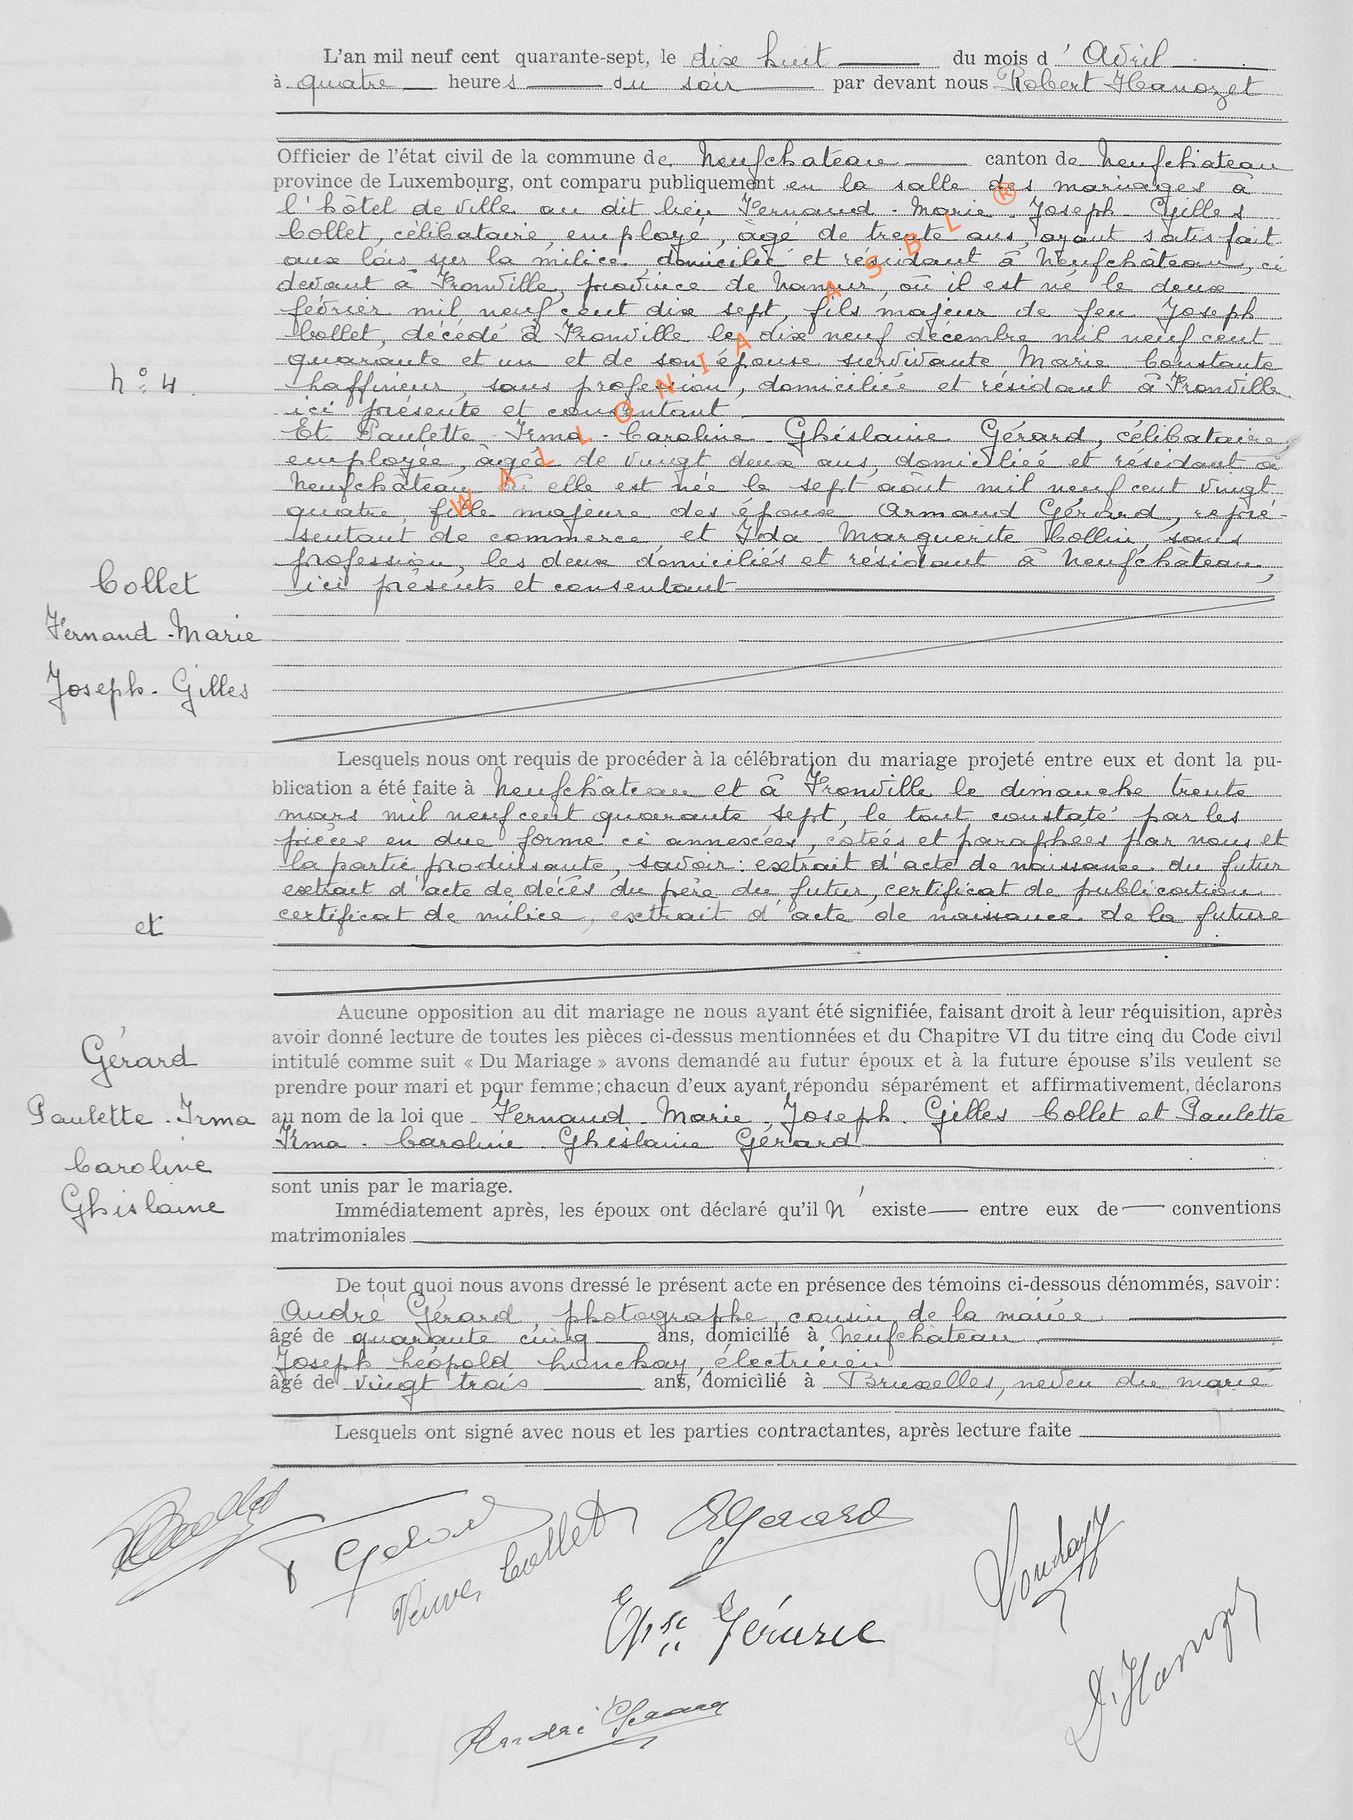 L'an mil neuf cent quarante-sept, le dix huit du mois d'Avril
à quatre heures du soir par devant nous Robert Hanozet
Officier de l'état civil de la commune de Neufchateau canton de Neufchateau
province de Luxembourg, ont comparu publiquement en la salle des mariages à
l'hôtel de ville au dit lieu Fernand - Marie - Joseph - Gilles
Collet, célibataire, employé, âgé de trente ans, ayant satisfait
aux lois sur la milice, domicilié et résidant à Neufchâteau, ci
devant à Fronville, province de Namur, où il est né le deux
février mil neuf cent dix sept, fils majeur de feu Joseph
Collet, décédé à Fronville le dix neuf décembre mil neuf cent
quarante et un et de son épouse survivante Marie Constante
Laffineur, sans profession, domiciliée et résidant à Fronville
ici présente et consentant
Et Paulette - Irma - Caroline - Ghislaine Gérard, célibataire,
employée, âgée de vingt deux ans, domiciliée et résidant à
Neufchâteau où elle est née le sept août mil neuf cent vingt
quatre, fille majeure des époux Armand Gérard, repré-
sentant de commerce et Ida - Marguerite Collin, sans
profession, les deux domiciliés et résidant à Neufchâteau,
ici présents et consentant
N° 4.
Collet
Fernand - Marie
Joseph - Gilles
et
Gérard
Paulette - Irma
Caroline
Ghislaine
Lesquels nous ont requis de procéder à la célébration du mariage projeté entre eux et dont la pu-
blication a été faite à Neufchâteau et à Fronville le dimanche trente
mars mil neuf cent quarante sept, le tout constaté par les
pièces en due forme ci annexées, cotées et paraphées par nous et
la partie produisante, savoir : extrait d'acte de naissance du futur
extrait d'acte de décès du père du futur, certificat de publication
certificat de milice, extrait d'acte de naissance de la future
Aucune opposition au dit mariage ne nous ayant été signifiée, faisant droit à leur réquisition, après
avoir donné lecture de toutes les pièces ci-dessus mentionnées et du Chapitre VI du titre cinq du Code civil
intitulé comme suit « Du Mariage » avons demandé au futur époux et à la future épouse s'ils veulent se
prendre pour mari et pour femme ; chacun d'eux ayant répondu séparément et affirmativement, déclarons
au nom de la loi que Fernand - Marie - Joseph - Gilles Collet et Paulette
Irma - Caroline - Ghislaine Gérard
sont unis par le mariage.
Immédiatement après, les époux ont déclaré qu'il n'existe entre eux de conventions
matrimoniales
De tout quoi nous avons dressé le présent acte en présence des témoins ci-dessous dénommés, savoir :
André Gérard, photographe, cousin de la mariée
âgé de quarante cinq ans, domicilié à Neufchateau
Joseph Léopold Lonchay, électricien
âgé de vingt trois ans, domicilié à Bruxelles, neveu du marié
Lesquels ont signé avec nous et les parties contractantes, après lecture faite
Veuve Collet
Gérard
Epse Gérard
Lonchay
André Gérard
R. Hanozet
WALLONIA ASBL ®